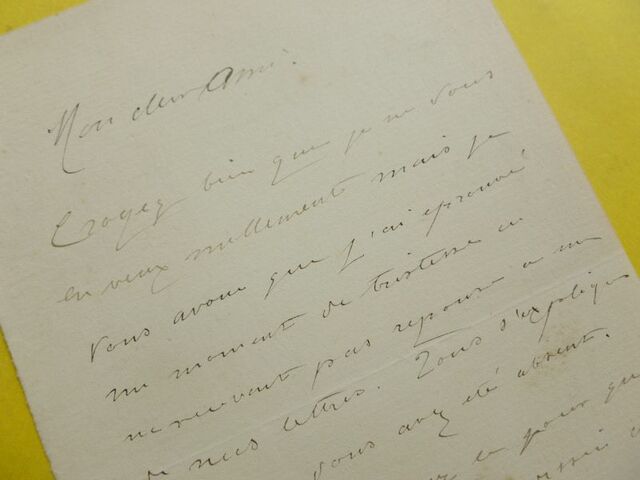 Mon cher Ami.
Croyez bien que je ne vous
en veux nullement mais je
vous avoue que j'ai éprouvé
un moment de tristesse en
ne recevant pas reponse a une
de mes lettres. Tout s'explique
vous avez été absent.
pour que